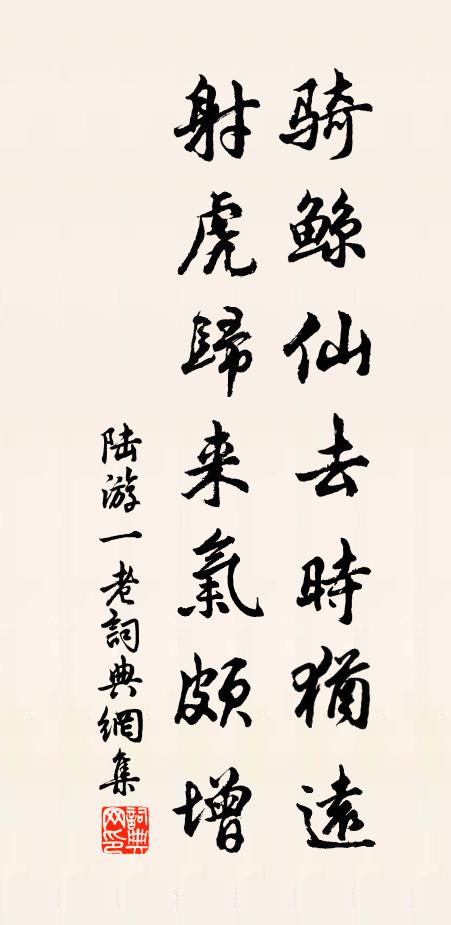 骑鲸仙去時猶遠
射虎歸来氣頗增
陆游一老詞典網集
詞典
网印